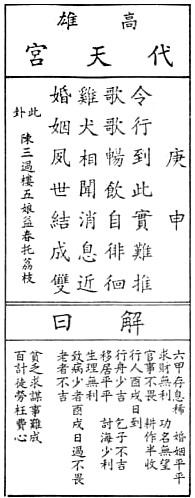 高雄
代天宮
庚申
令行到此實難推
歌歌暢飲自徘徊
雞犬相聞消息近
婚姻夙世結成雙
此卦 陳三過樓五娘益春托荔枝
解曰
六甲存息稀 婚姻平平
求財無利 功名無望
官事不畏 耕作半收
行人酉戌日到
行舟少吉 乞子不吉
移居平平 討海少利
生理無利
致病少者酉戌日過不畏
老者不吉
貧乏求謀事難成
百計徒勞枉費心